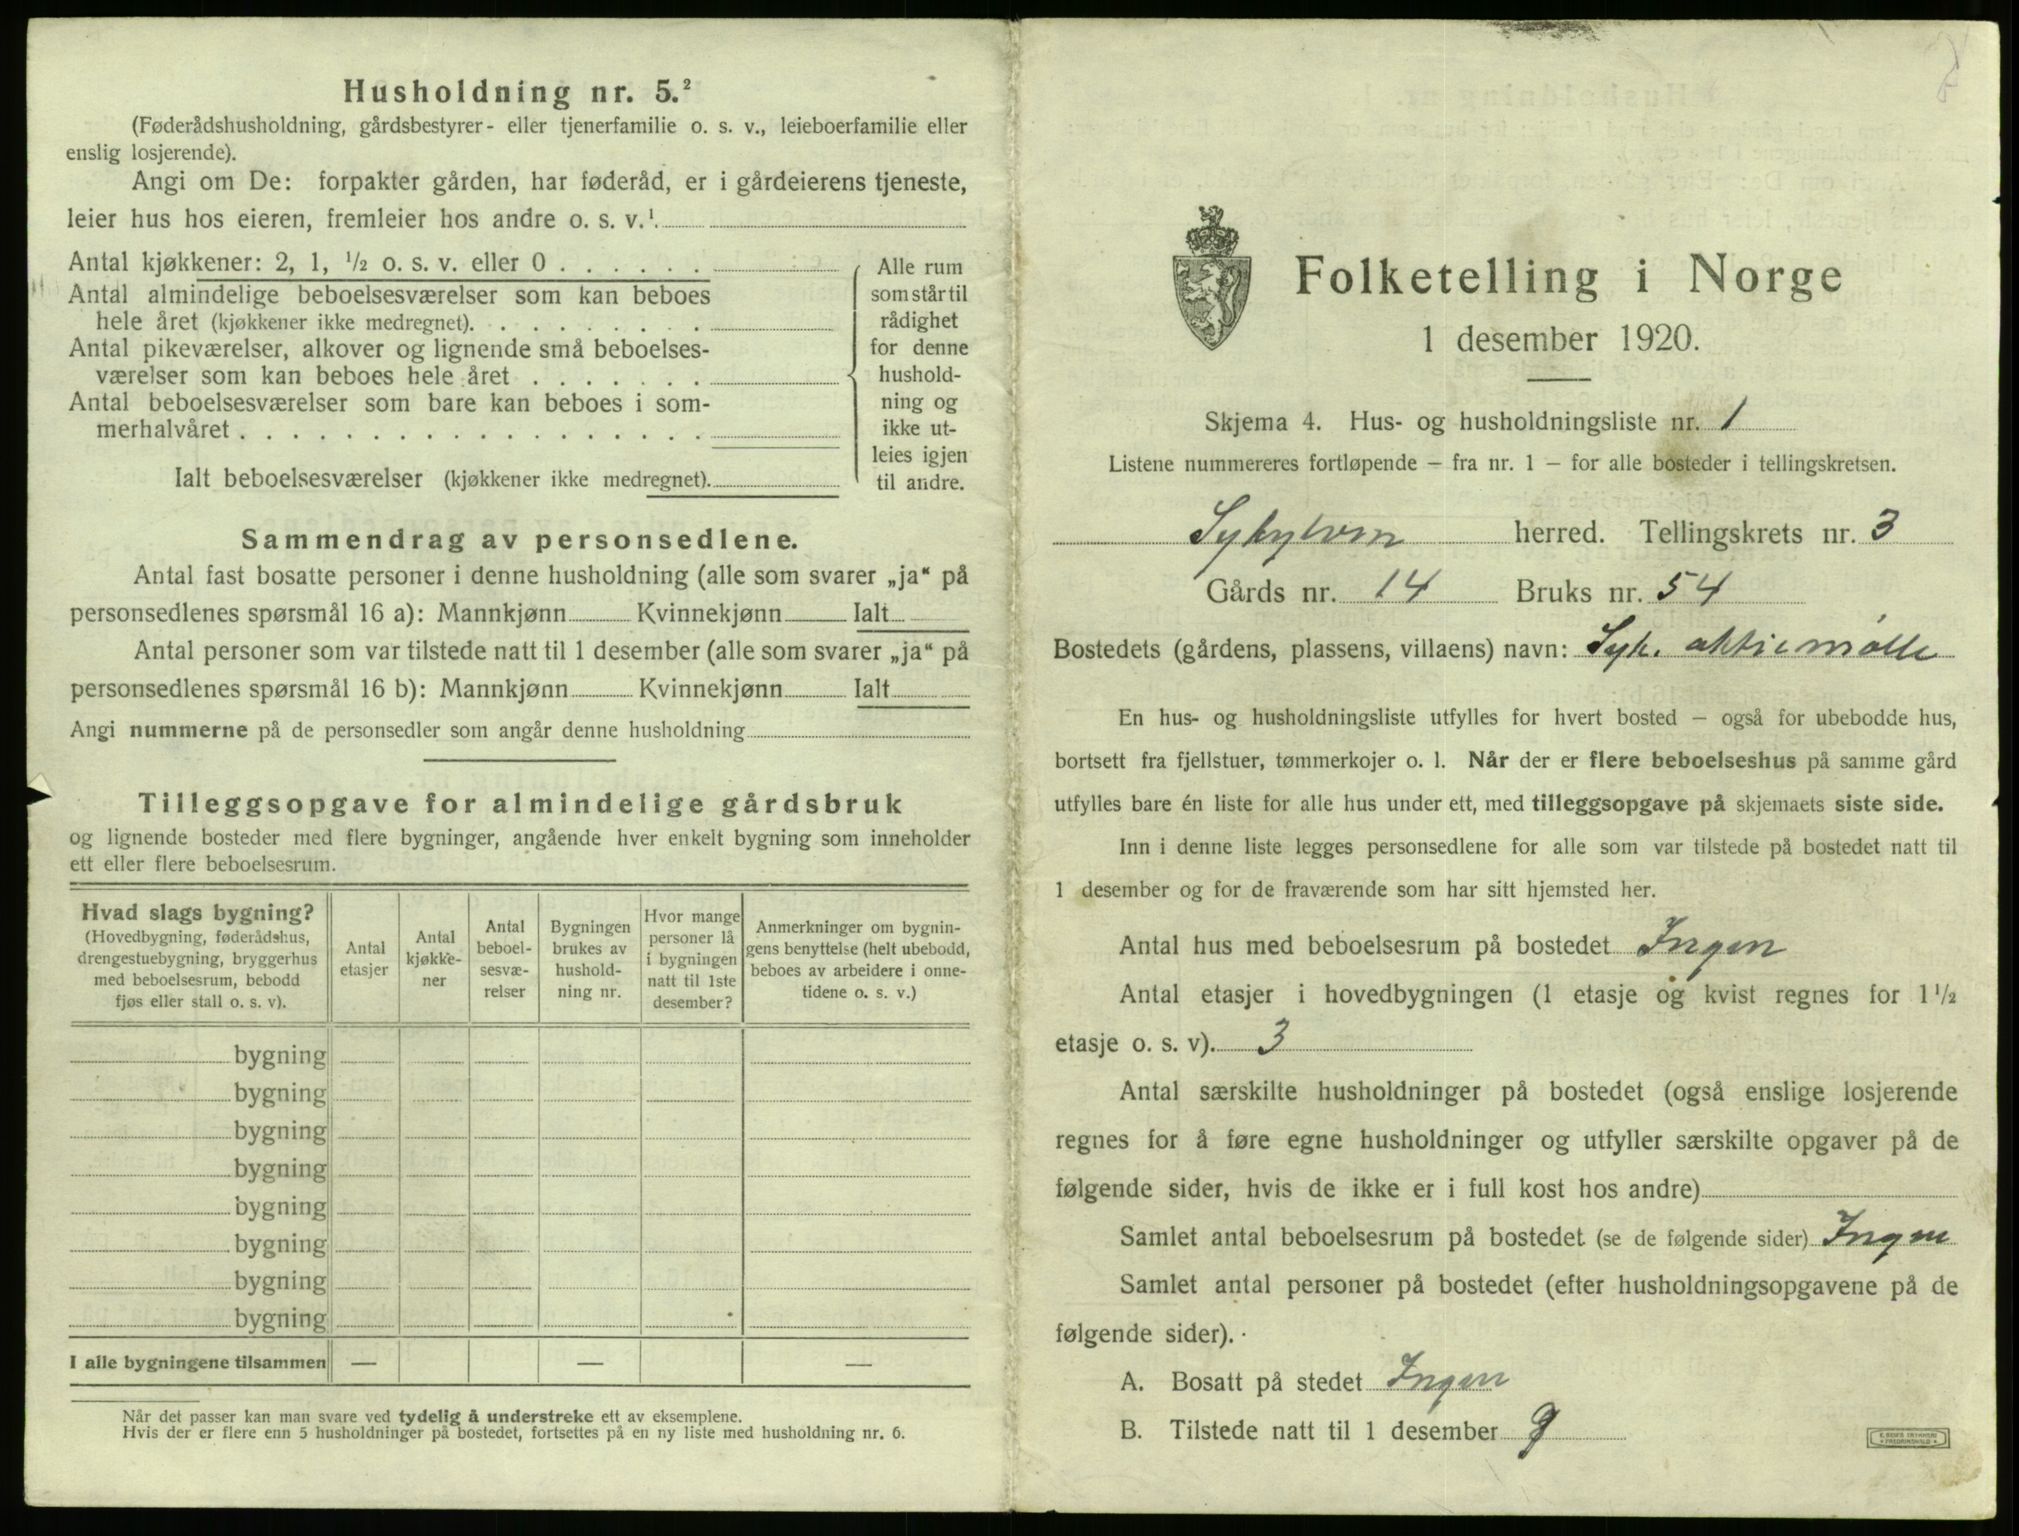 Husholdning nr. 5.²
(Føderådshusholdning, gårdsbestyrer- eller tjenerfamilie o. s. v., leieboerfamilie eller
enslig losjerende).
Angi om De: forpakter gården, har føderåd, er i gårdeierens tjeneste,
leier hus hos eieren, fremleier hos andre o. s. v.¹
Antal kjøkkener: 2, 1, ½ o. s. v. eller 0 . . . . . .
Antal almindelige beboelsesværelser som kan beboes
hele året (kjøkkener ikke medregnet). . . . . . . . .
Antal pikeværelser, alkover og lignende små beboelses-
værelser som kan beboes hele året . . . . . . .
Antal beboelsesværelser som bare kan beboes i som-
merhalvåret . . . . . . . . . . . . . . . . . .
Ialt beboelsesværelser (kjøkkener ikke medregnet).
Alle rum
som står til
rådighet
for denne
hushold-
ning og
ikke ut-
leies igjen
til andre.
Sammendrag av personsedlene.
Antal fast bosatte personer i denne husholdning (alle som svarer „ja“ på
personsedlenes spørsmål 16 a): Mannkjønn Kvinnekjønn Ialt
Antal personer som var tilstede natt til 1 desember (alle som svarer „ja“ på
personsedlenes spørsmål 16 b): Mannkjønn Kvinnekjønn Ialt
Angi nummerne på de personsedler som angår denne husholdning
Tilleggsopgave for almindelige gårdsbruk
og lignende bosteder med flere bygninger, angående hver enkelt bygning som inneholder
ett eller flere beboelsesrum.
Hvad slags bygning?
(Hovedbygning, føderådshus,
drengestuebygning, bryggerhus
med beboelsesrum, bebodd
fjøs eller stall o. s. v).
Antal
etasjer
Antal
kjøkke-
ner
Antal
beboel-
sesvæ-
relser
Bygningen
brukes av
hushold-
ning nr.
Hvor mange
personer lå
i bygningen
natt til 1ste
desember?
Anmerkninger om bygnin-
gens benyttelse (helt ubebodd,
beboes av arbeidere i onne-
tidene o. s. v.)
bygning
bygning
bygning
bygning
bygning
bygning
bygning
bygning
I alle bygningene tilsammen — — —
Når det passer kan man svare ved tydelig å understreke ett av eksemplene.
Hvis der er flere enn 5 husholdninger på bostedet, fortsettes på en ny liste med husholdning nr. 6.
Folketelling i Norge
1 desember 1920.
Skjema 4. Hus- og husholdningsliste nr. 1
Listene nummereres fortløpende – fra nr. 1 – for alle bosteder i tellingskretsen.
Sykylven herred. Tellingskrets nr. 3
Gårds nr. 14 Bruks nr. 54
Bostedets (gårdens, plassens, villaens) navn: Syk. aktiemølle
En hus- og husholdningsliste utfylles for hvert bosted – også for ubebodde hus,
bortsett fra fjellstuer, tømmerkojer o. l. Når der er flere beboelseshus på samme gård
utfylles bare én liste for alle hus under ett, med tilleggsopgave på skjemaets siste side.
Inn i denne liste legges personsedlene for alle som var tilstede på bostedet natt til
1 desember og for de fraværende som har sitt hjemsted her.
Antal hus med beboelsesrum på bostedet Ingen
Antal etasjer i hovedbygningen (1 etasje og kvist regnes for 1½
etasje o. s. v). 3
Antal særskilte husholdninger på bostedet (også enslige losjerende
regnes for å føre egne husholdninger og utfyller særskilte opgaver på de
følgende sider, hvis de ikke er i full kost hos andre)
Samlet antal beboelsesrum på bostedet (se de følgende sider) Ingen
Samlet antal personer på bostedet (efter husholdningsopgavene på de
følgende sider).
A. Bosatt på stedet Ingen
B. Tilstede natt til 1 desember